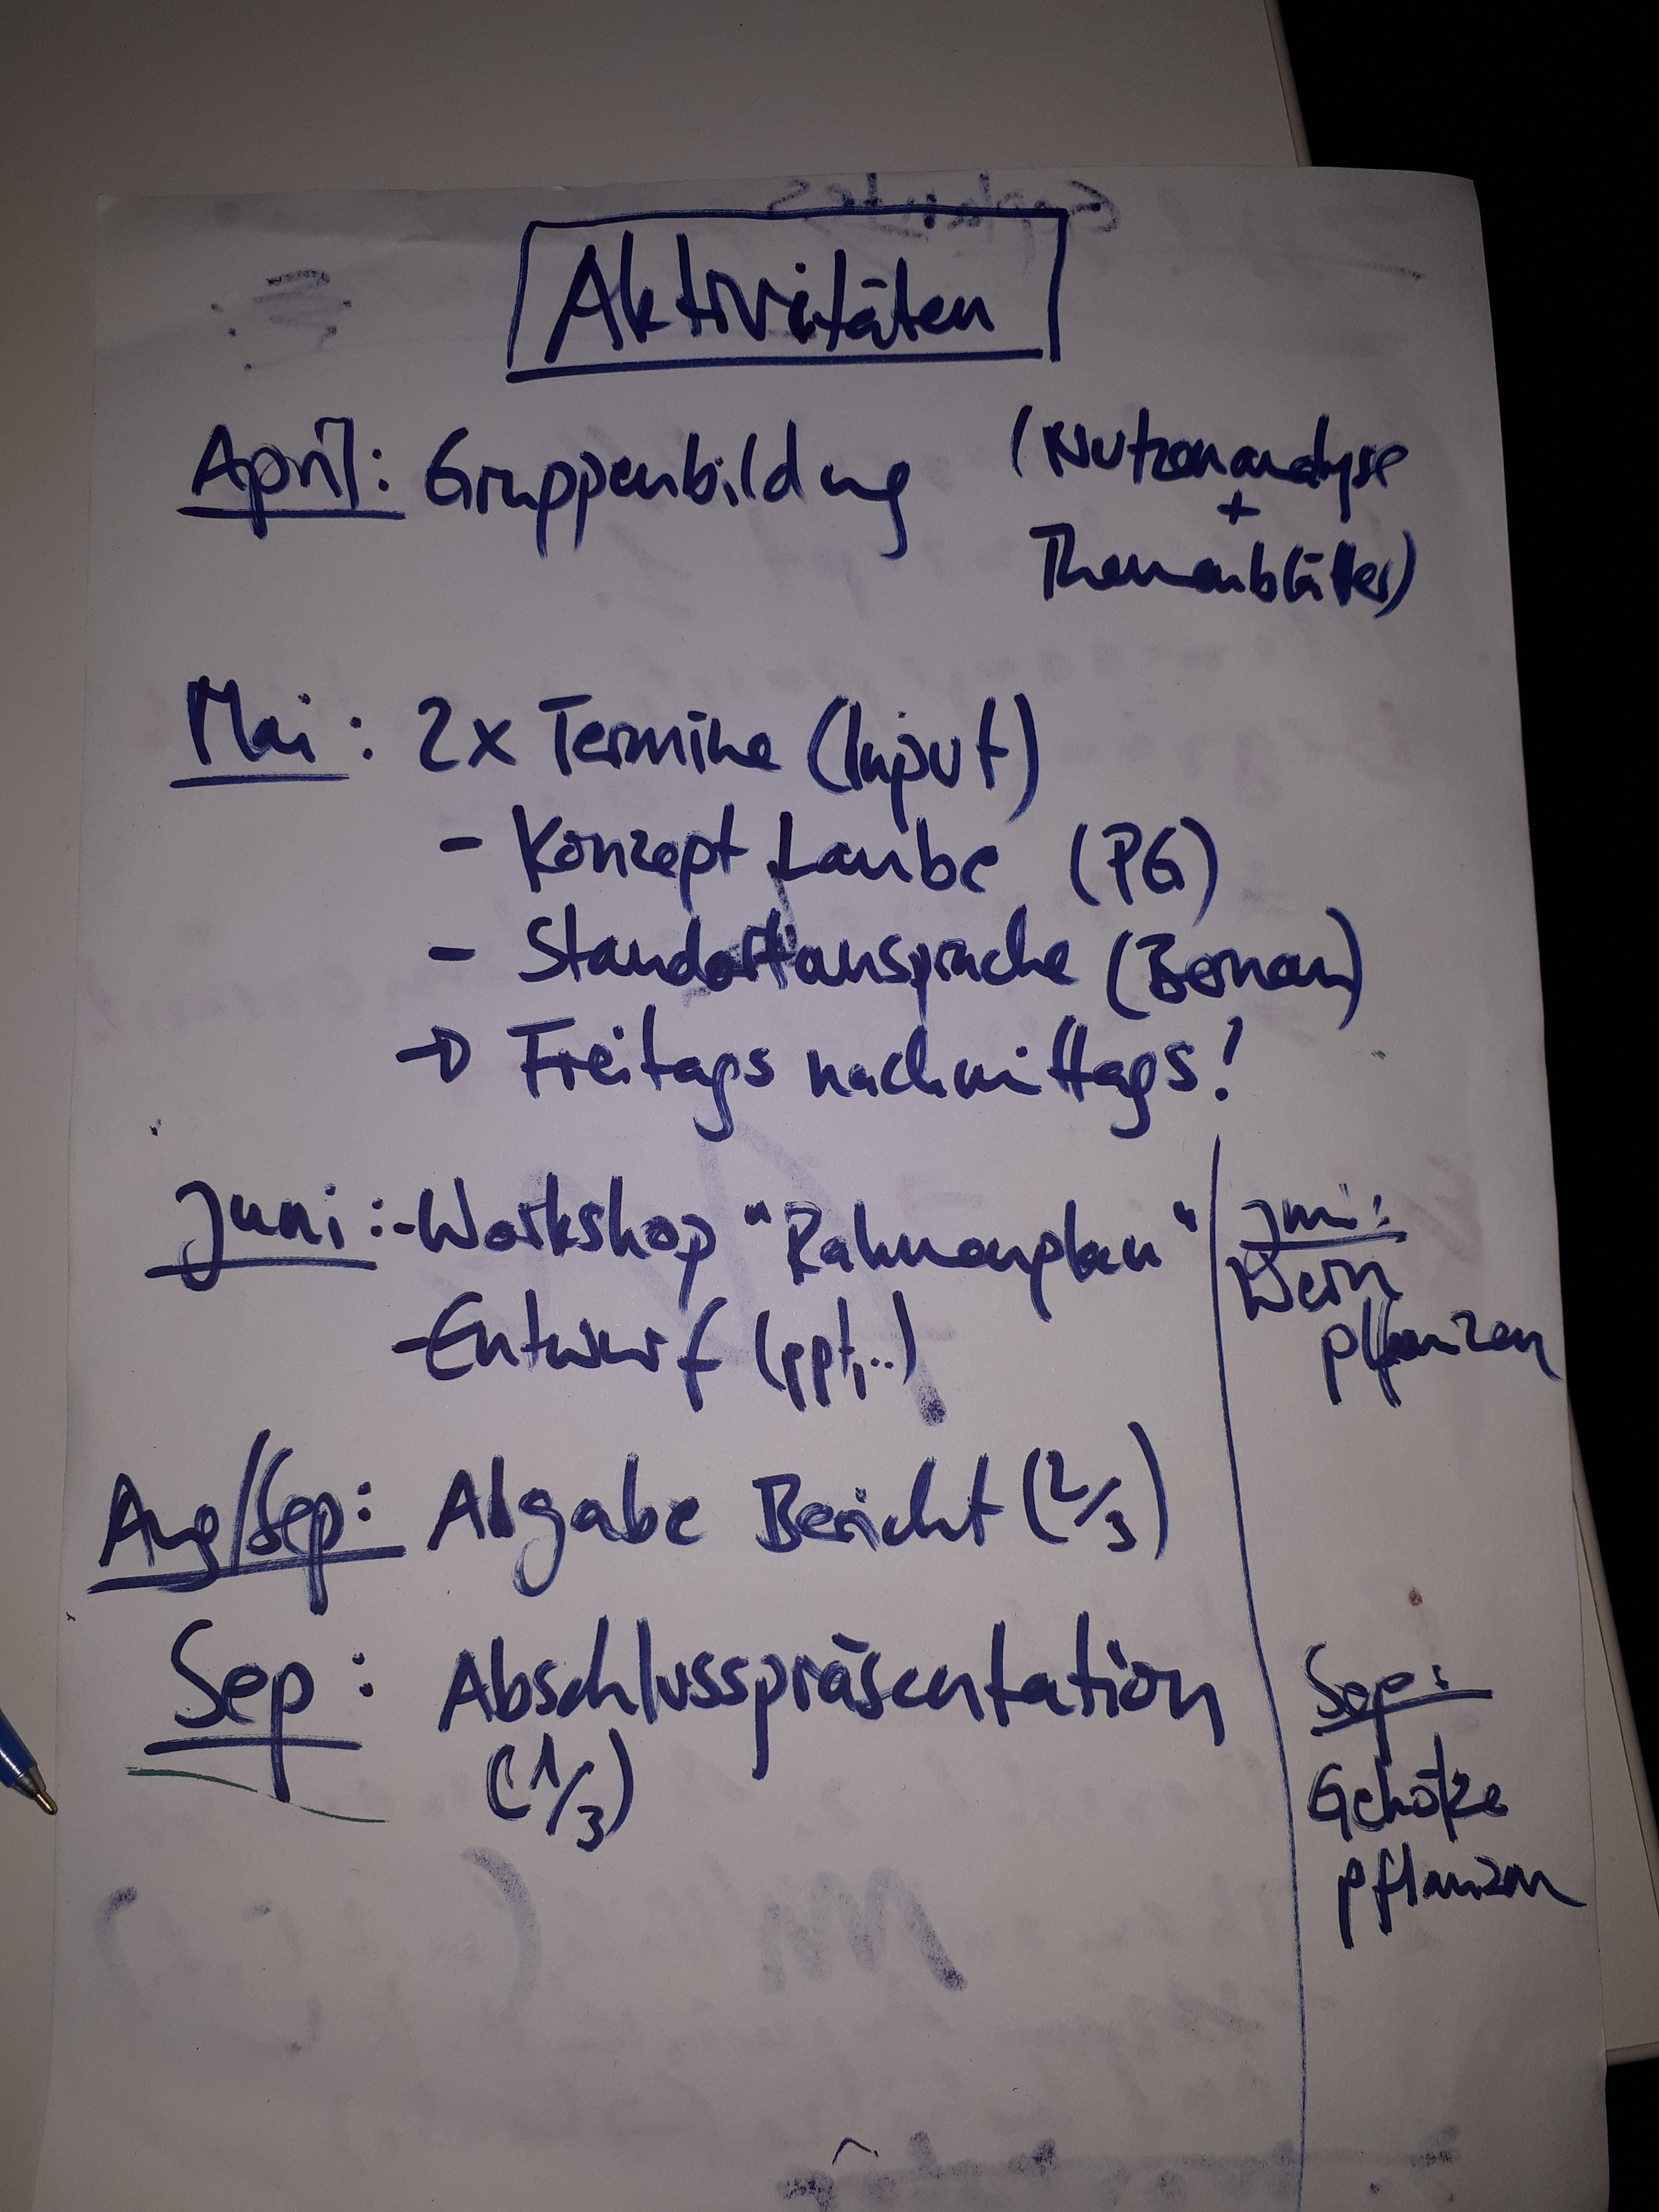 Aktivitäten
April: Gruppenbildung (Nutzenanalyse
+
Themenblätter)
Mai: 2x Termine (Input)
- Konzept Laube (PG)
- Standortansprache (Bernau)
→ Freitags nachmittags!
Juni: - Workshop "Rahmenplan"
- Entwurf (ppt,..)
Juni:
Wein
pflanzen
Aug/Sep: Abgabe Bericht (2/3)
Sep: Abschlusspräsentation
(1/3)
Sep:
Gehölze
pflanzen